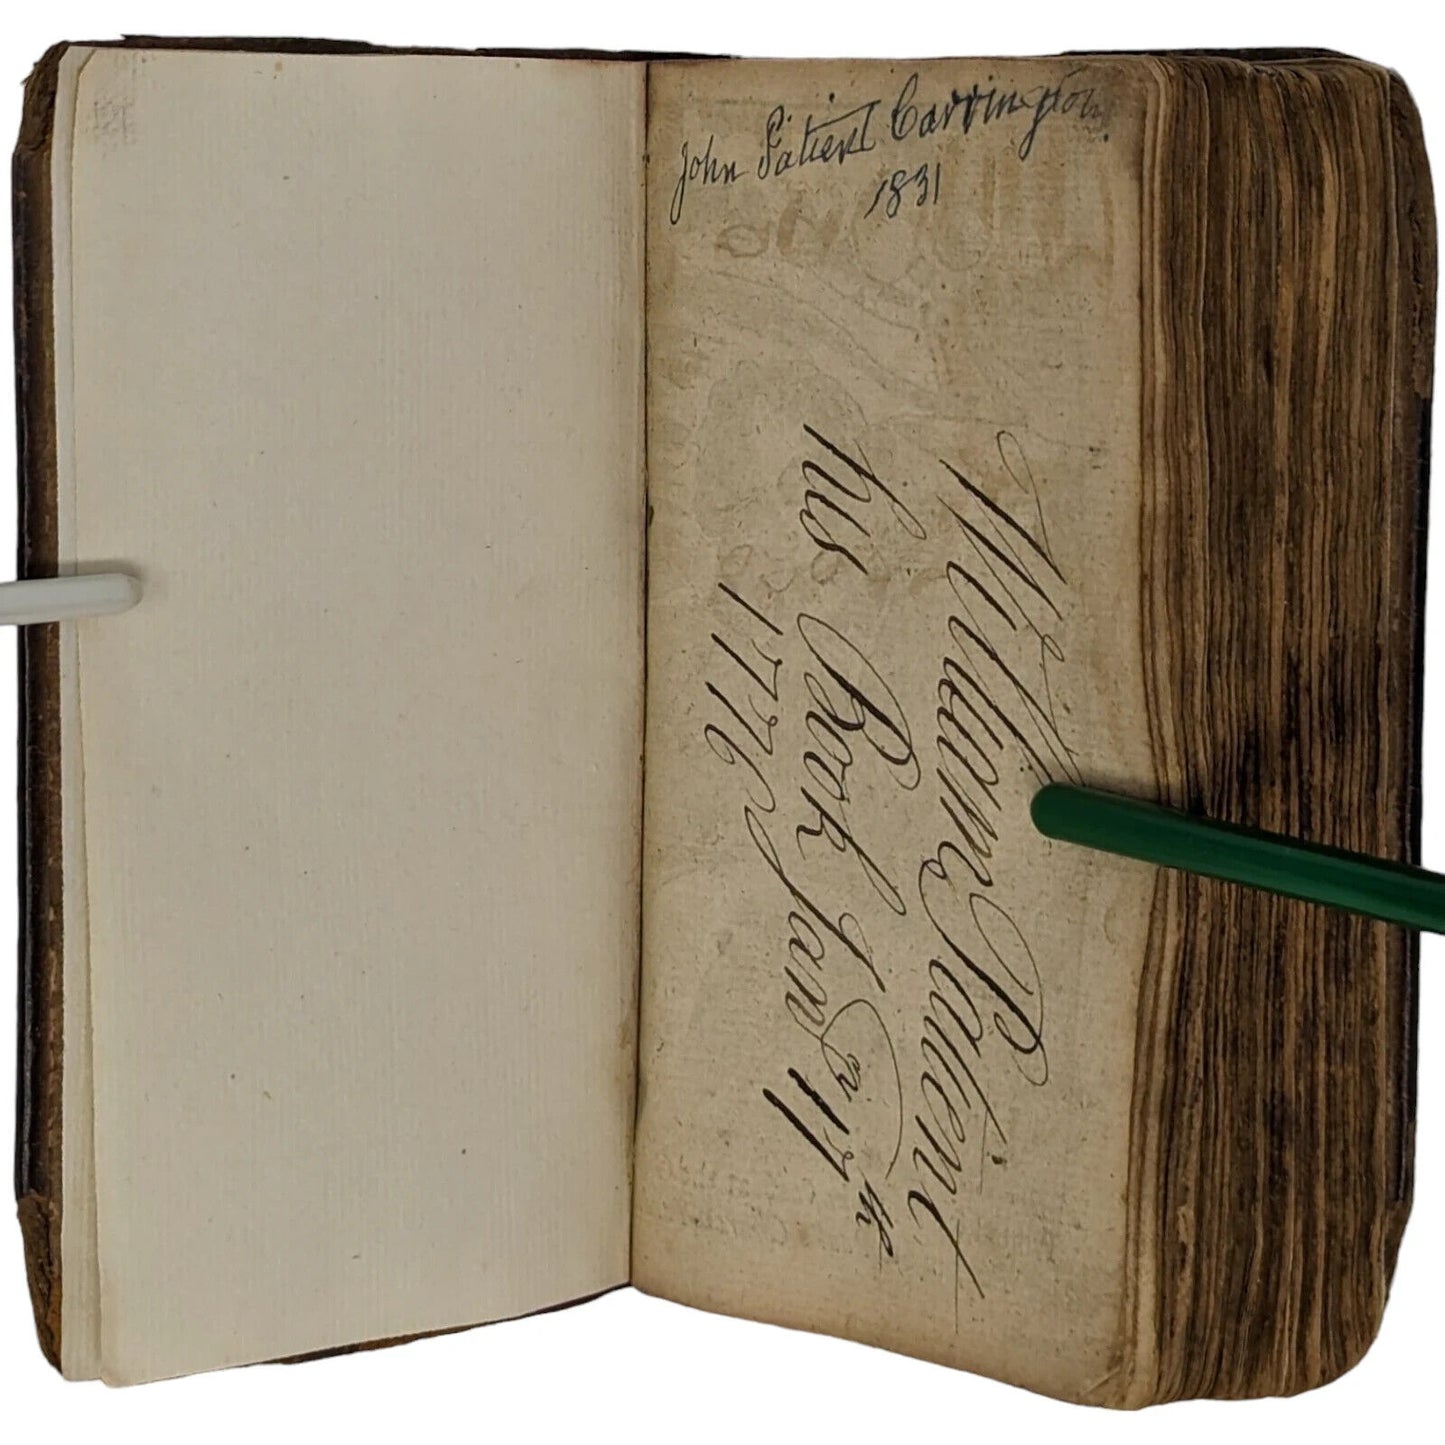 John Patient Carrington
1831
William Patient
his Book Jan.y 17th
1776